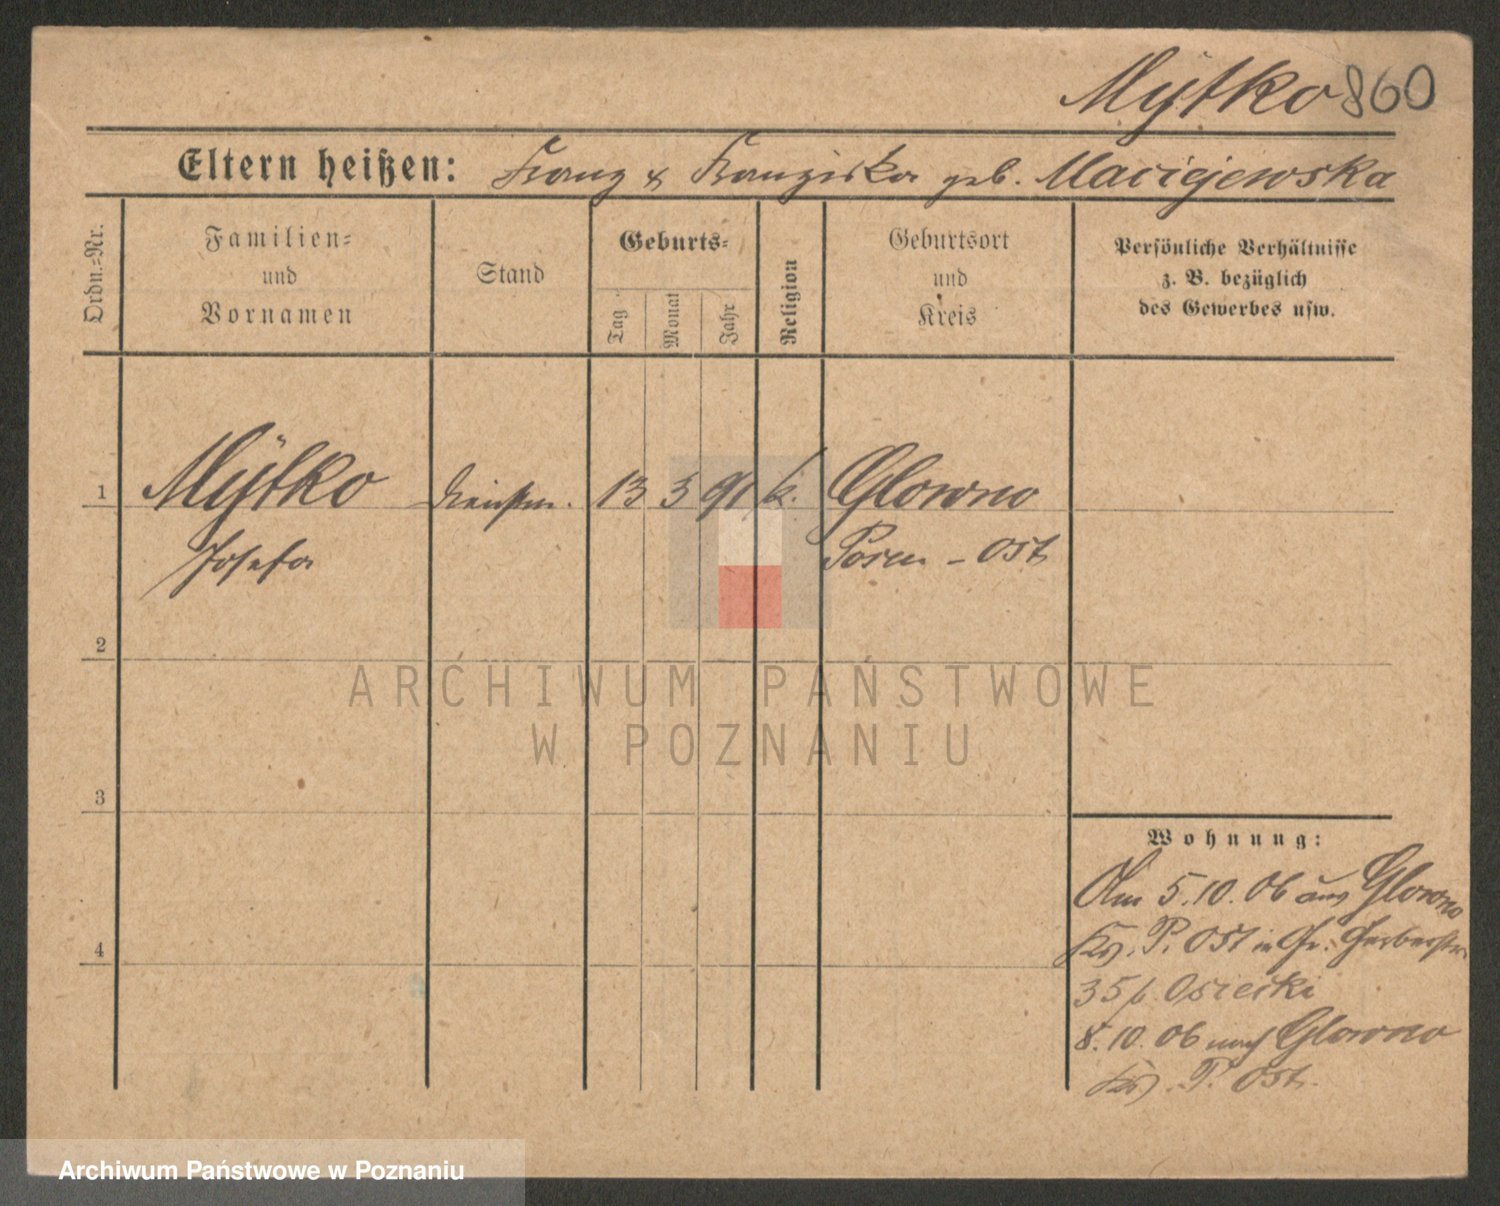 Mytko 860
Eltern heißen: Franz & Franziska geb. Maciejewska
Ordn.-Nr.
Familien-
und
Vornamen
Stand
Geburts-
Tag
Monat
Jahr
Religion
Geburtsort
und
Kreis
Persönliche Verhältnisse
z. B. bezüglich
des Gewerbes usw.
1 Mytko Dienstm. 13 3 91 k. Glowno
Josefa Posen - Ost
2
ARCHIWUM PAŃSTWOWE
W POZNANIU
3
Wohnung:
Am 5.10.06 aus Glowno
Krs. P. Ost in Gr. Gerberstr.
4
35 b. Osiecki
8.10.06 nach Glowno
Krs. P. Ost.
Archiwum Państwowe w Poznaniu